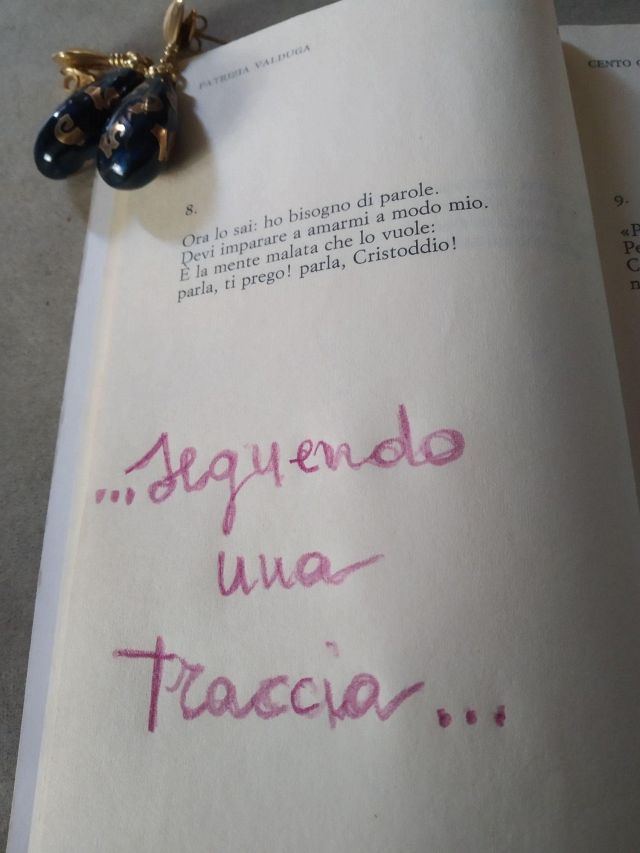 PATRIZIA VALDUGA
8.
Ora lo sai: ho bisogno di parole.
Devi imparare a amarmi a modo mio.
È la mente malata che lo vuole:
parla, ti prego! parla, Cristoddio!
...seguendo
una
traccia...
CENTO
9.
«P
Pe
C
n